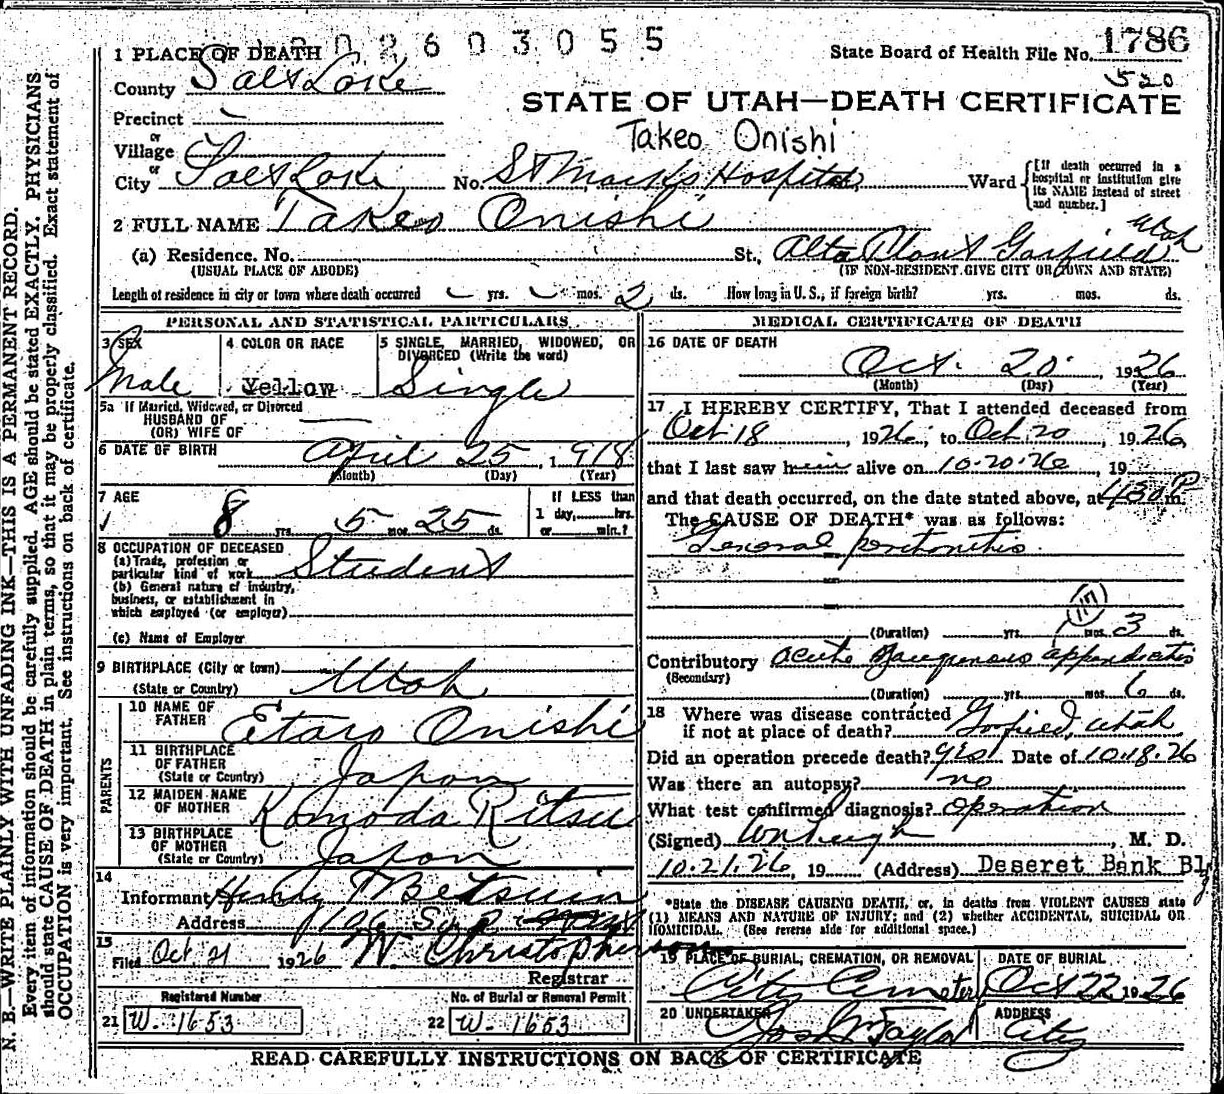 N. B.—WRITE PLAINLY WITH UNFADING INK—THIS IS A PERMANENT RECORD.
Every item of information should be carefully supplied. AGE should be stated EXACTLY. PHYSICIANS
should state CAUSE OF DEATH in plain terms, so that it may be properly classified. Exact statement of
OCCUPATION is very important. See instructions on back of certificate.
2603055
State Board of Health File No. 1786
520
1 PLACE OF DEATH
County Salt Lake
STATE OF UTAH—DEATH CERTIFICATE
Precinct
or
Village
Takeo Onishi
or
City Salt Lake No. St Mark's Hospital Ward
[If death occurred in a
hospital or institution give
its NAME instead of street
and number.]
2 FULL NAME Takeo Onishi
(a) Residence. No. St., Alta Plant Garfield Utah
(USUAL PLACE OF ABODE) (IF NON-RESIDENT GIVE CITY OR TOWN AND STATE)
Length of residence in city or town where death occurred – yrs. – mos. 2 ds. How long in U. S., if foreign birth? yrs. mos. ds.
PERSONAL AND STATISTICAL PARTICULARS
3 SEX Male
4 COLOR OR RACE Yellow
5 SINGLE, MARRIED, WIDOWED, OR
DIVORCED (Write the word)
Single
5a If Married, Widowed, or Divorced
HUSBAND OF
(OR) WIFE OF
6 DATE OF BIRTH April 25, 1918
(Month) (Day) (Year)
7 AGE
8 yrs. 5 mos. 25 ds.
If LESS than
1 day,......hrs.
or......min.?
8 OCCUPATION OF DECEASED
(a) Trade, profession or
particular kind of work Student
(b) General nature of industry,
business, or establishment in
which employed (or employer)
(c) Name of Employer
9 BIRTHPLACE (City or town)
(State or Country) Utah
PARENTS
10 NAME OF
FATHER Etaro Onishi
11 BIRTHPLACE
OF FATHER
(State or Country) Japan
12 MAIDEN NAME
OF MOTHER Komoda Ritsu
13 BIRTHPLACE
OF MOTHER
(State or Country) Japan
14
Informant Henry T Betsuin
Address
15
Filed Oct 21 1926 W. Christopherson
Registrar
Registered Number
21 W-1653
No. of Burial or Removal Permit
22 W-1653
MEDICAL CERTIFICATE OF DEATH
16 DATE OF DEATH
Oct. 20. 1926
(Month) (Day) (Year)
17 I HEREBY CERTIFY, That I attended deceased from
Oct 18, 1926, to Oct 20, 1926,
that I last saw him alive on 10-20-26, 19
and that death occurred, on the date stated above, at 4:30 P m.
The CAUSE OF DEATH* was as follows:
General peritonitis
117
(Duration) yrs. mos. 3 ds.
Contributory acute gangrenous appendicitis
(Secondary)
(Duration) yrs. mos. 6 ds.
18 Where was disease contracted
if not at place of death? Garfield, Utah
Did an operation precede death? yes Date of 10.18.26
Was there an autopsy? no
What test confirmed diagnosis? operation
(Signed) M. D.
10.21.26, 19 (Address) Deseret Bank Blg
*State the DISEASE CAUSING DEATH, or, in deaths from VIOLENT CAUSES state
(1) MEANS AND NATURE OF INJURY; and (2) whether ACCIDENTAL, SUICIDAL OR
HOMICIDAL. (See reverse side for additional space.)
19 PLACE OF BURIAL, CREMATION, OR REMOVAL
City Cemetery
DATE OF BURIAL
Oct 22 1926
20 UNDERTAKER
Jos Wm Taylor
ADDRESS
City
READ CAREFULLY INSTRUCTIONS ON BACK OF CERTIFICATE